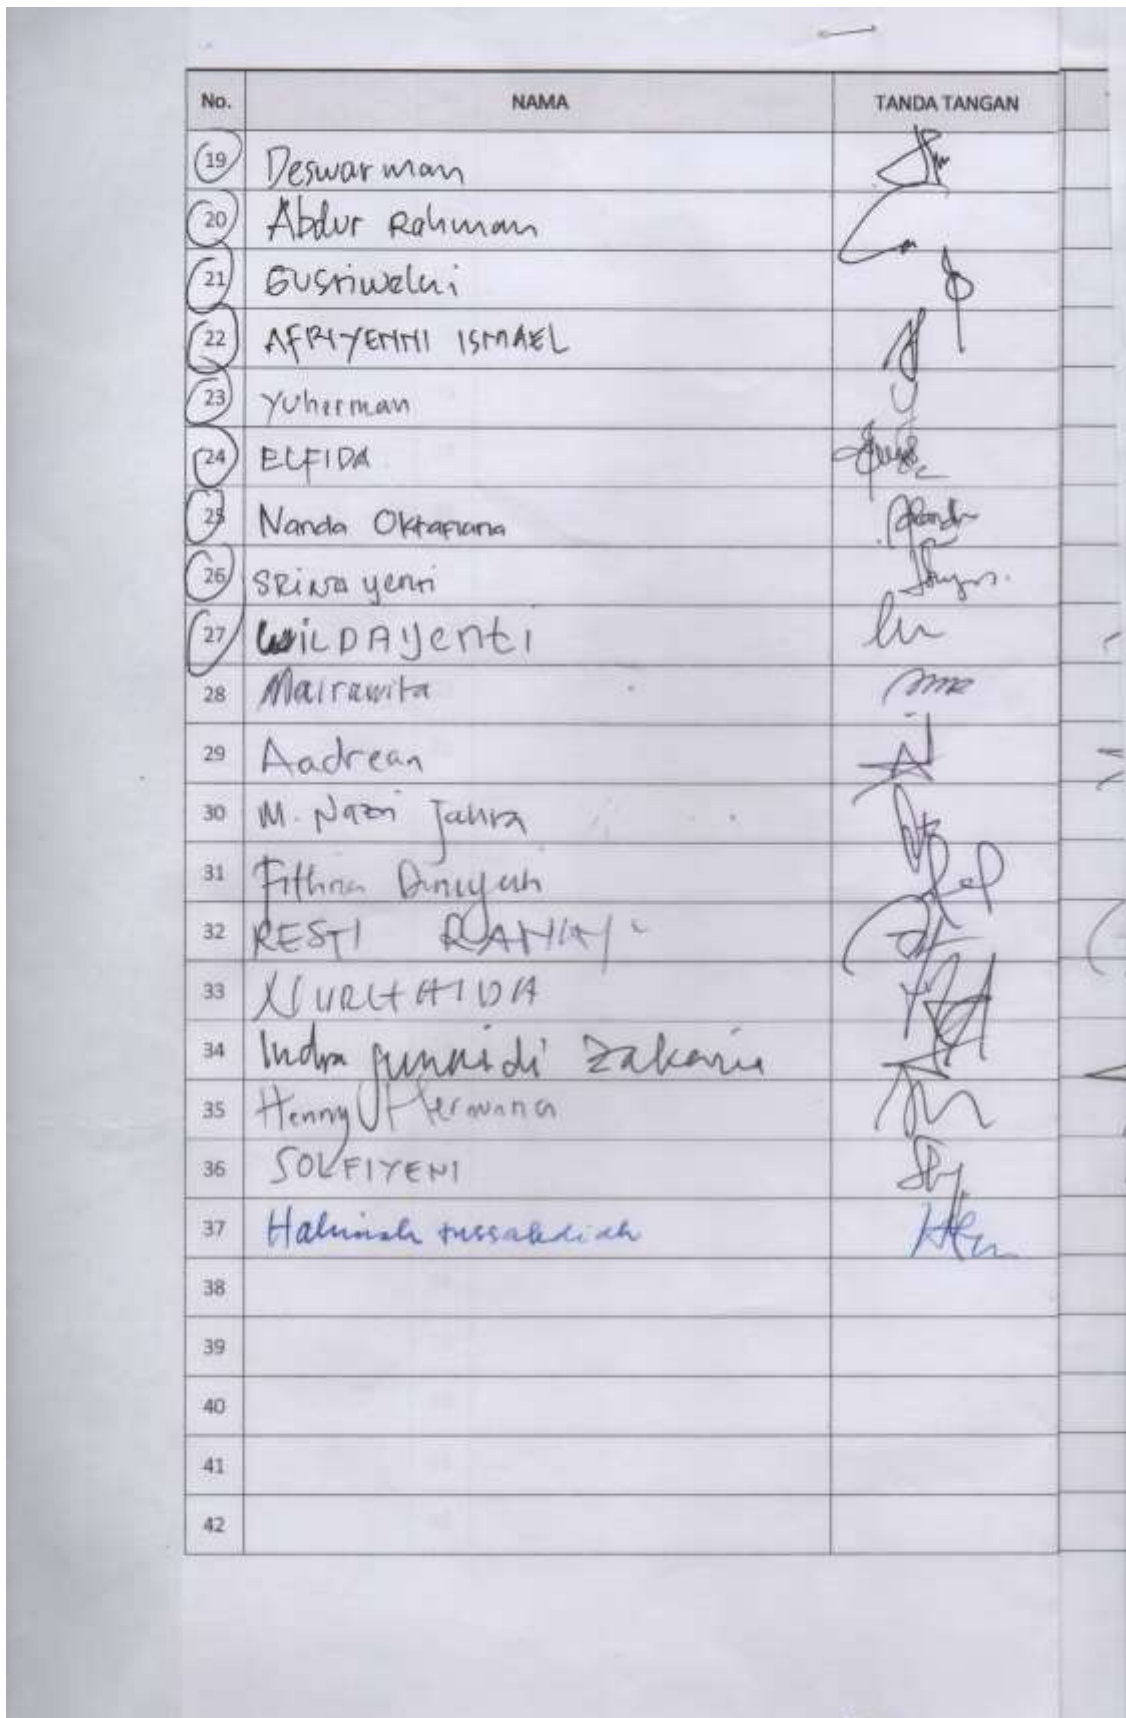 No. NAMA TANDA TANGAN
19 Deswarman
20 Abdur Rahman
21 Gusriwelni
22 AFRIYENNI ISMAEL
23 Yuherman
24 ELFIDA
25 Nanda Oktafiana
26 SRiNa yenti
27 WiLDAYenti
28 Mairawita
29 Aadrean
30 M. Nazri Janra
31 Fithria Diniyah
32 RESTI RAHAYU
33 NURHAIDA
34 Indra Junaidi Zakaria
35 Henny Herwina
36 SOLFIYENI
37 Halimah tussakdiah
38
39
40
41
42